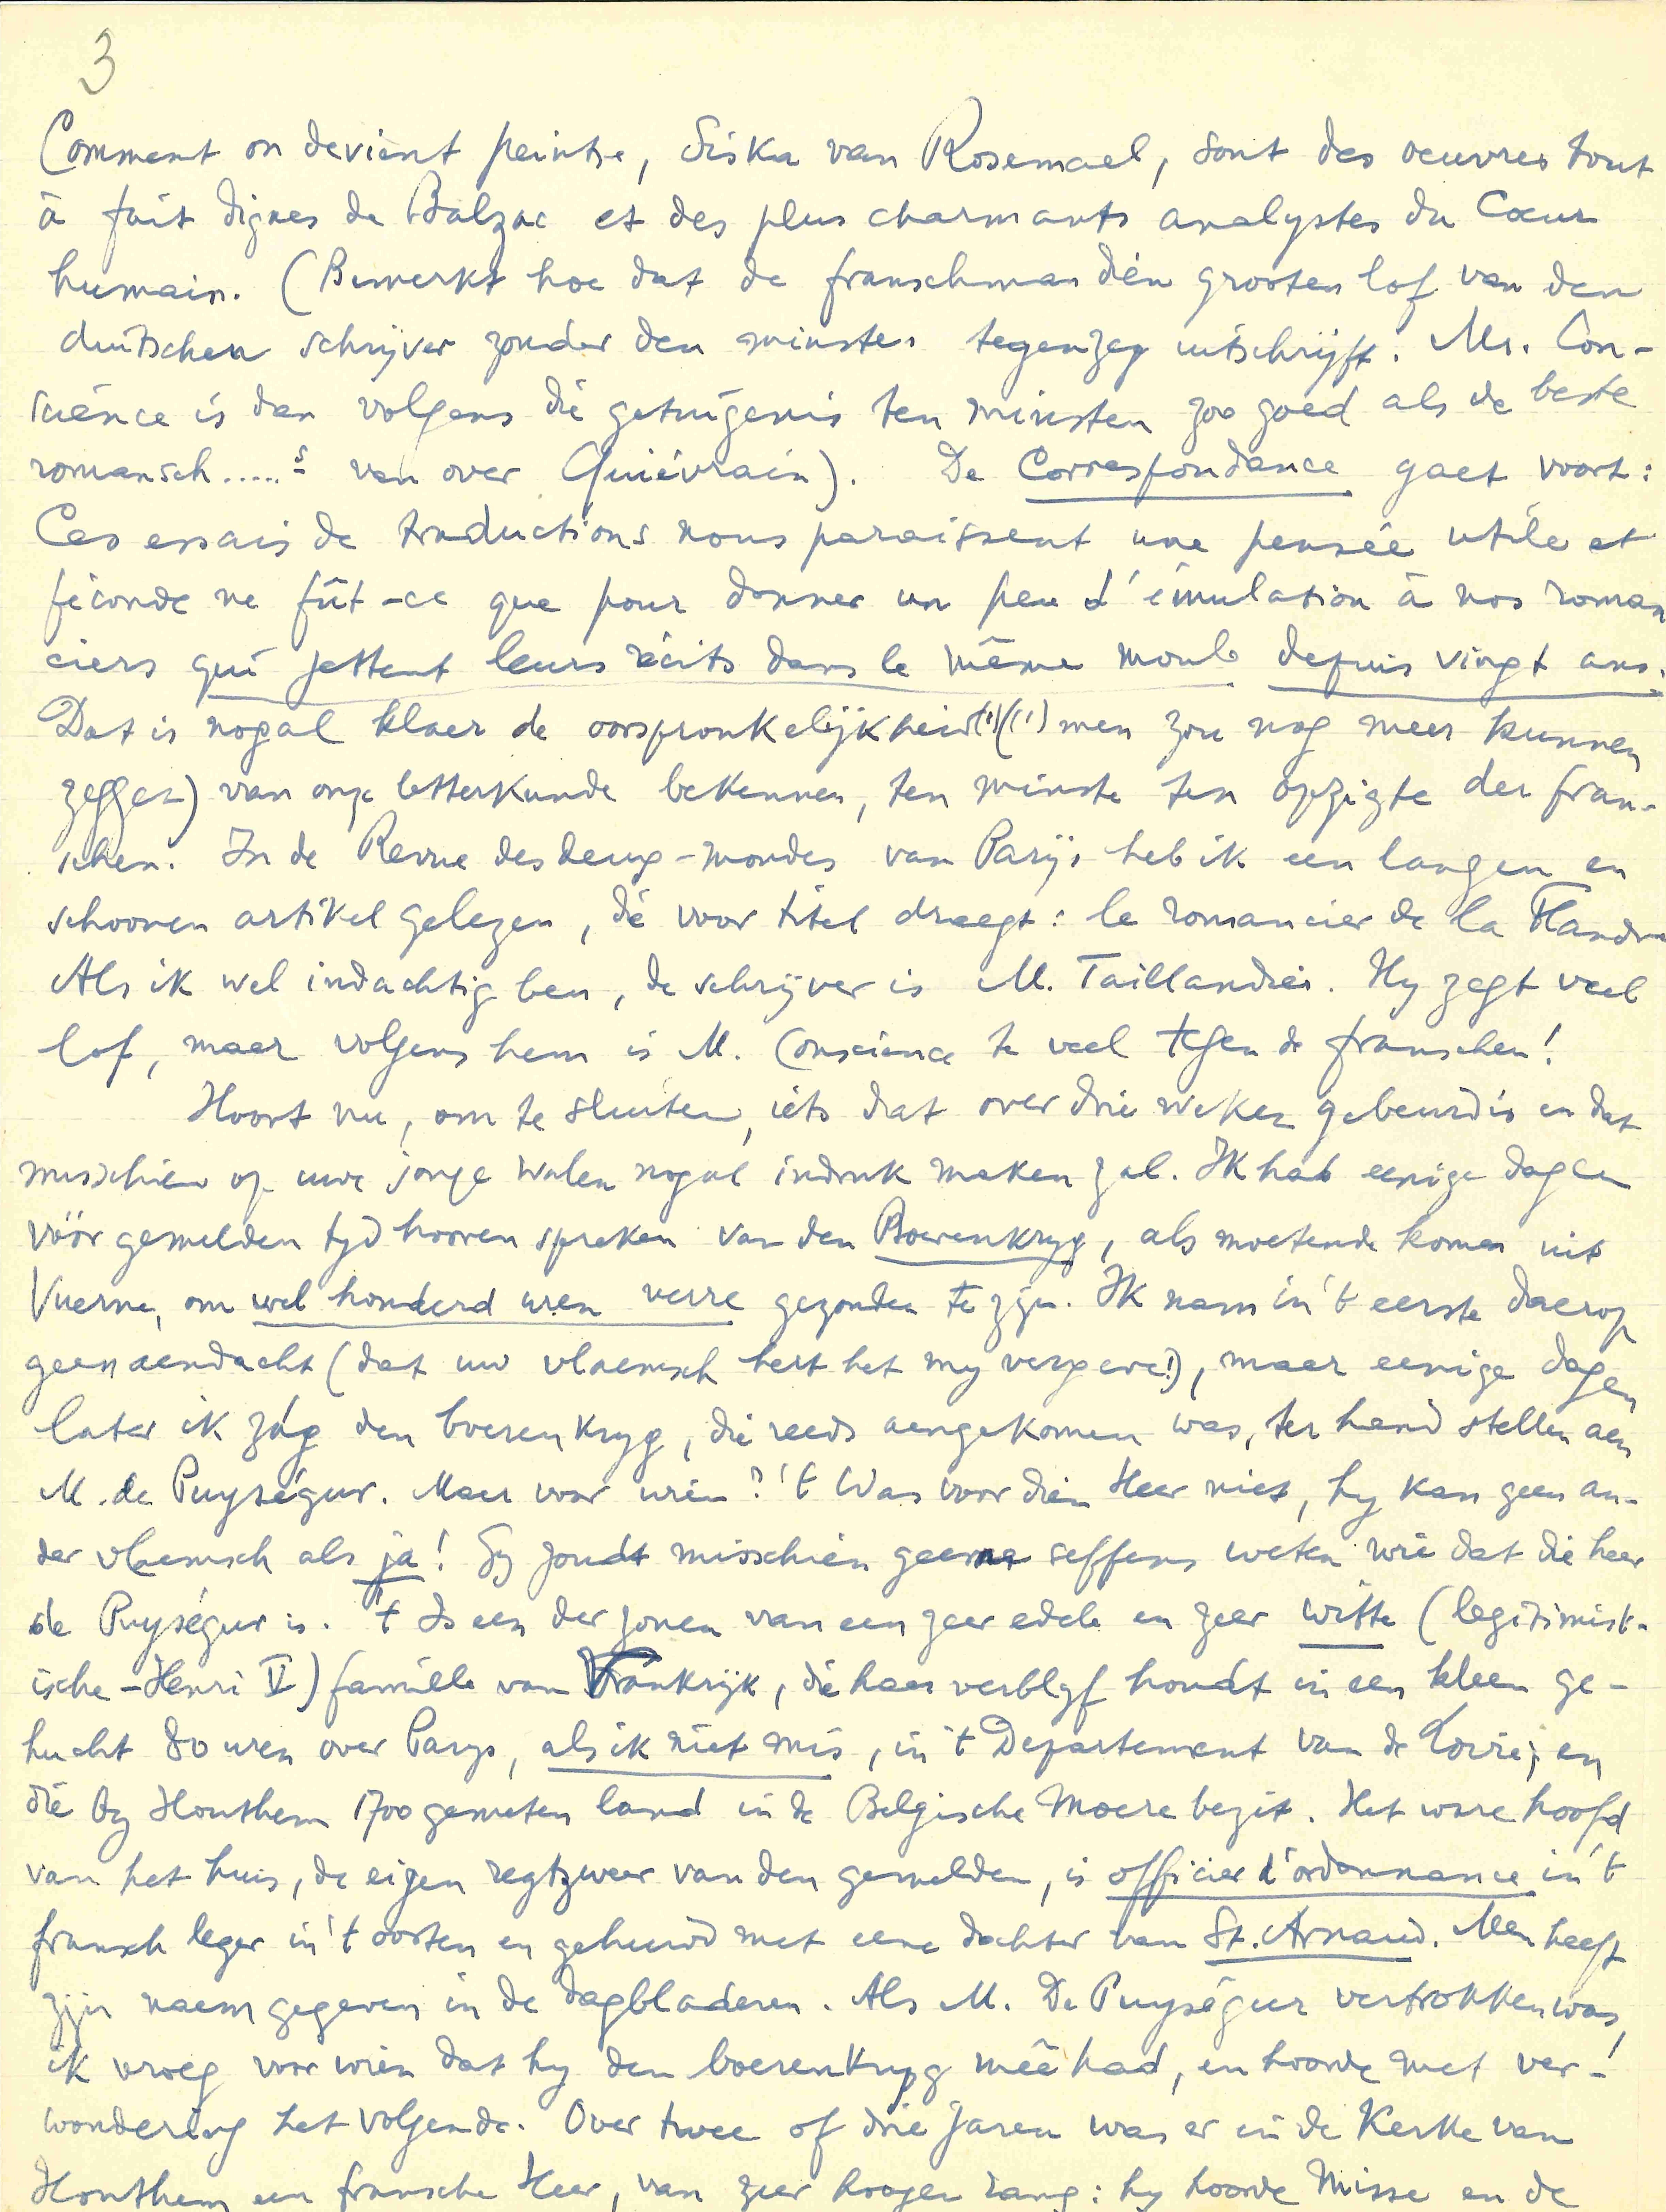 3
Comment on devient peintre, Siska van Rosemael, sont des oeuvres tout
à fait dignes de Balzac et des plus charmants analystes du Cœur
humain. (Bemerkt hoe dat de franschman dien grooten lof van den
duitschen schrijver zonder den minsten tegenzeg uitschrijft. Mr. Con-
science is dan volgens die getuigenis ten minsten zoo goed als de beste
romansch.....s van over Quiévrain). De Correspondance gaet voort:
Ces essais de traductions nous paraissent une pensée utile et
féconde ne fût-ce que pour donner un peu d'émulation à nos roman
ciers qui jettent leurs récits dans le même moule depuis vingt ans.
Dat is nogal klaer de oorspronkelijkheid (!) (men zou nog meer kunnen
zeggen) van onze letterkunde bekennen, ten minste ten opzigte der fran-
schen. In de Revue des deux-mondes van Parijs heb ik een langen en
schoonen artikel gelezen, die voor titel draegt: le romancier de la Flandre
Als ik wel indachtig ben, de schrijver is M. Taillandier. Hy zegt veel
lof, maer volgens hem is M. Conscience te veel tegen de franschen!
Hoort nu, om te sluiten, iets dat over drie weken gebeurd is en dat
misschien op uwe jonge Walen nogal indruk maken zal. Ik heb eenige dagen
vóór gemelden tyd hooren spreken van den Boerenkryg, als moetende komen uit
Vuerne, om wel honderd uren verre gezonden te zyn. Ik nam in 't eerste daerop
geen aendacht (dat uw vlaemsch hert het my vergeve!), maer eenige dagen
later ik zag den boerenkryg, die reeds aengekomen was, ter hand stellen aen
M. de Puységur. Maer voor wien? 't Was voor dien Heer niet, hy kan geen an-
der vlaemsch als ja! Gy zoudt misschien geerne seffens weten wie dat die heer
de Puységur is. 't Is een der zonen van een zeer edele en zeer witte (legitimist-
ische - Henri V) famille van Frankrijk, die haer verblyf houdt in een kleen ge-
hucht 80 uren over Parys, als ik niet mis, in 't Departement van de Loire, en
die by Houthem 1700 gemeten land in de Belgische Moere bezit. Het ware hoofd
van het huis, de eigen regtzweer van den gemelden, is officier d'ordonnance in 't
fransch leger in 't oosten en gehuwd met eene dochter van St. Arnaud. Men heeft
zijn naem gegeven in de dagbladeren. Als M. De Puységur vertrokken was,
ik vroeg voor wien dat hy den boerenkryg meê had, en hoorde met ver-
wondering het volgende. Over twee of drie Jaren was er in de Kerke van
Houthem een fransche Heer, van zeer hoogen rang: hy hoorde Misse en de